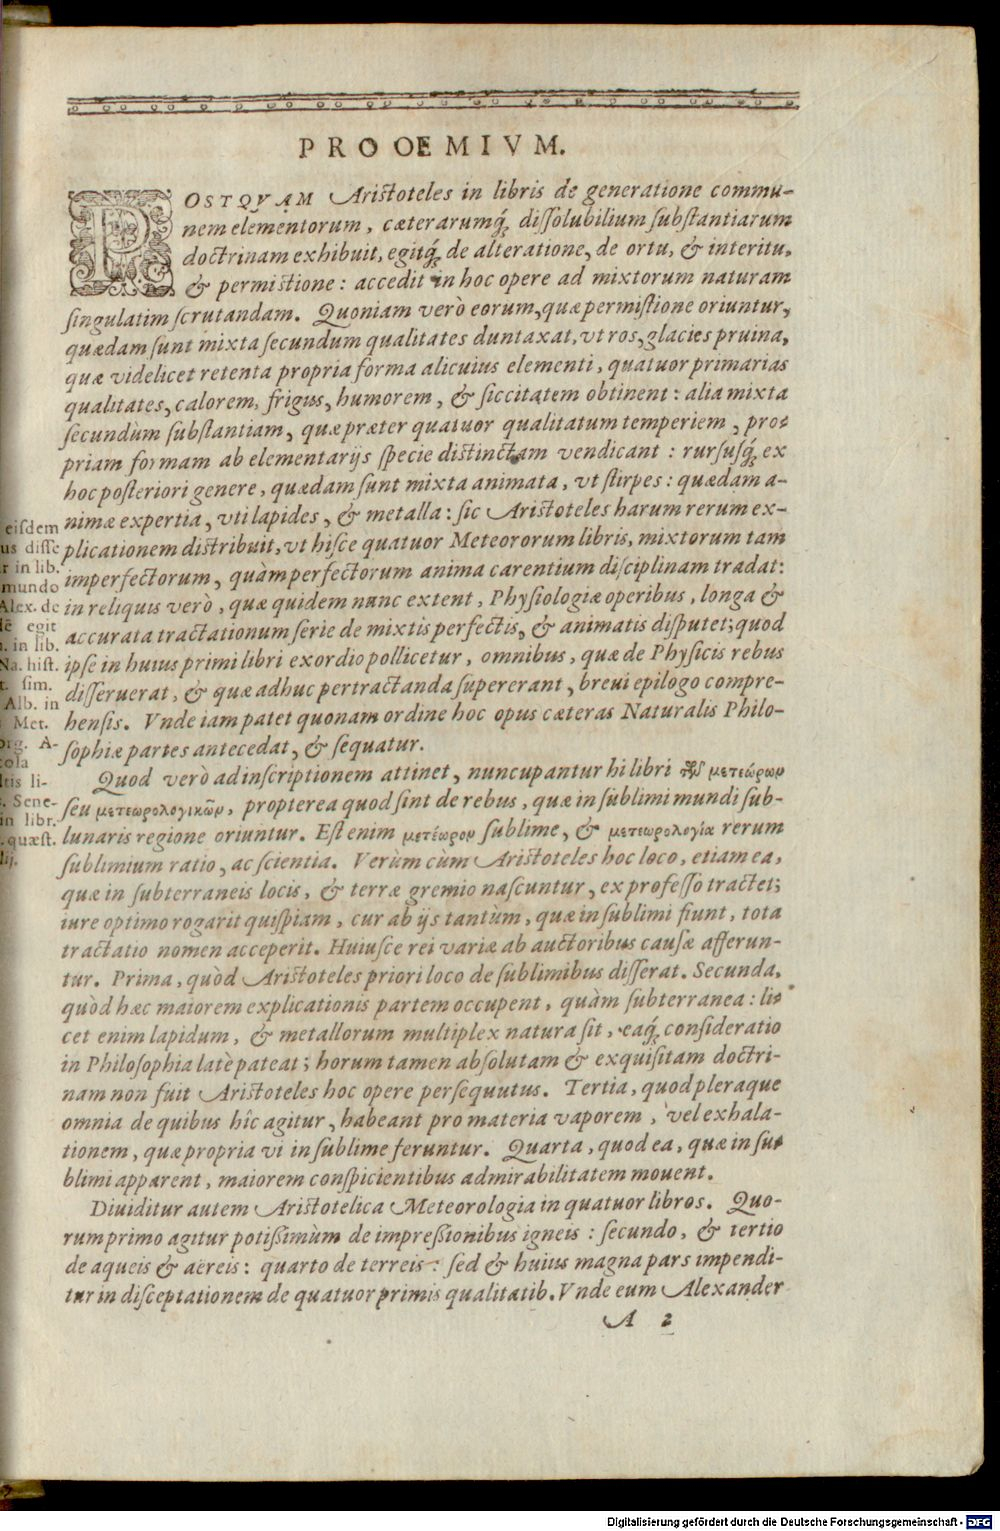 PROOEMIVM.
POSTQVAM Aristoteles in libris de generatione commu-
nem elementorum, cæterarumq́; dissolubilium substantiarum
doctrinam exhibuit, egitq́; de alteratione, de ortu, & interitu,
& permistione: accedit in hoc opere ad mixtorum naturam
singulatim scrutandam. Quoniam verò eorum, quæ permistione oriuntur,
quædam sunt mixta secundum qualitates duntaxat, vt ros, glacies pruina,
quæ videlicet retenta propria forma alicuius elementi, quatuor primarias
qualitates, calorem, frigus, humorem, & siccitatem obtinent: alia mixta
secundùm substantiam, quæ præter quatuor qualitatum temperiem, pro-
priam formam ab elementarijs specie distinctam vendicant: rursusq́; ex
hoc posteriori genere, quædam sunt mixta animata, vt stirpes: quædam a-
nimæ expertia, vti lapides, & metalla: sic Aristoteles harum rerum ex-
plicationem distribuit, vt hisce quatuor Meteororum libris, mixtorum tam
imperfectorum, quàm perfectorum anima carentium disciplinam tradat:
in reliquis verò, quæ quidem nunc extent, Physiologiæ operibus, longa &
accurata tractationum serie de mixtis perfectis, & animatis disputet; quod
ipse in huius primi libri exordio pollicetur, omnibus, quæ de Physicis rebus
disseruerat, & quæ adhuc pertractanda supererant, breui epilogo compre-
hensis. Vnde iam patet quonam ordine hoc opus cæteras Naturalis Philo-
sophiæ partes antecedat, & sequatur.
eisdem
us disse
r in lib.
mundo
Alex. de
lẽ egit
. in lib.
Na. hist.
t. sim.
Alb. in
Met.
org. A-
cola
ltis li-
. Sene-
in libr.
. quæst.
lij.
Quod verò ad inscriptionem attinet, nuncupantur hi libri τῶν μετεώρων
seu μετεωρολογικῶν, propterea quod sint de rebus, quæ in sublimi mundi sub-
lunaris regione oriuntur. Est enim μετέωρον sublime, & μετεωρολογία rerum
sublimium ratio, ac scientia. Verùm cùm Aristoteles hoc loco, etiam ea,
quæ in subterraneis locis, & terræ gremio nascuntur, ex professo tractet;
iure optimo rogarit quispiam, cur ab ijs tantùm, quæ in sublimi fiunt, tota
tractatio nomen acceperit. Huiusce rei variæ ab auctoribus causæ afferun-
tur. Prima, quòd Aristoteles priori loco de sublimibus disserat. Secunda,
quòd hæc maiorem explicationis partem occupent, quàm subterranea: li-
cet enim lapidum, & metallorum multiplex natura sit, eaq́; consideratio
in Philosophia latè pateat; horum tamen absolutam & exquisitam doctri-
nam non fuit Aristoteles hoc opere persequutus. Tertia, quod pleraque
omnia de quibus hîc agitur, habeant pro materia vaporem, vel exhala-
tionem, quæ propria vi in sublime feruntur. Quarta, quod ea, quæ in su-
blimi apparent, maiorem conspicientibus admirabilitatem mouent.
Diuiditur autem Aristotelica Meteorologia in quatuor libros. Quo-
rum primo agitur potißimùm de impreßionibus igneis: secundo, & tertio
de aqueis & aereis: quarto de terreis: sed & huius magna pars impendi-
tur in disceptationem de quatuor primis qualitatib. Vnde eum Alexander
A 2
Digitalisierung gefördert durch die Deutsche Forschungsgemeinschaft - DFG